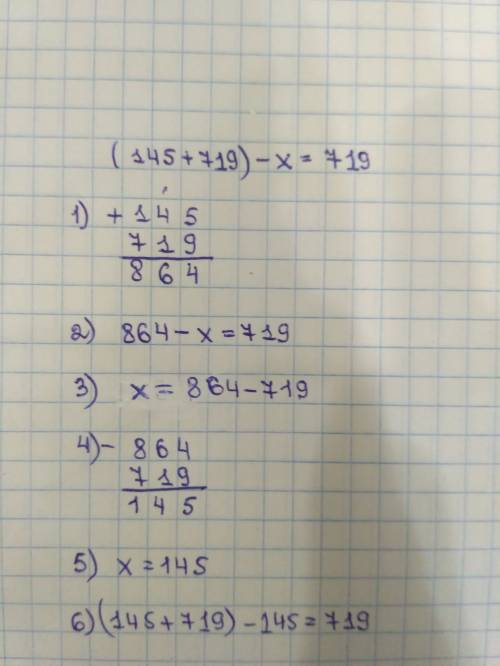 (145+719)-x=719
1) + 145
719
864
2) 864-x=719
3) x=864-719
4) - 864
719
145
5) x=145
6) (145+719)-145=719